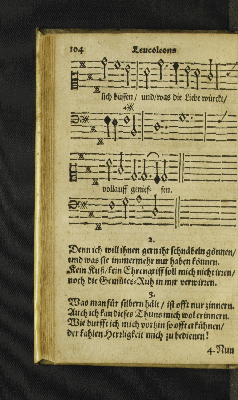 104 Leucoleons
sich küssen / und / was die Liebe würckt /
vollauff genies- sen.
2.
Denn ich will ihnen gern ihr schnäbeln gönnen /
und was sie immermehr nur haben können.
Kein Kuß / kein Ehrengriff soll mich nicht irren /
noch die Gemütes-Ruh in mir verwirren.
3.
Was man für silbern hält / ist offt nur zinnern.
Auch ich kan dieses Thuns mich wol erinnern.
Wie durfft ich mich vorhin so offt erkühnen /
der kahlen Herrligkeit mich zu bedienen!
4. Nun